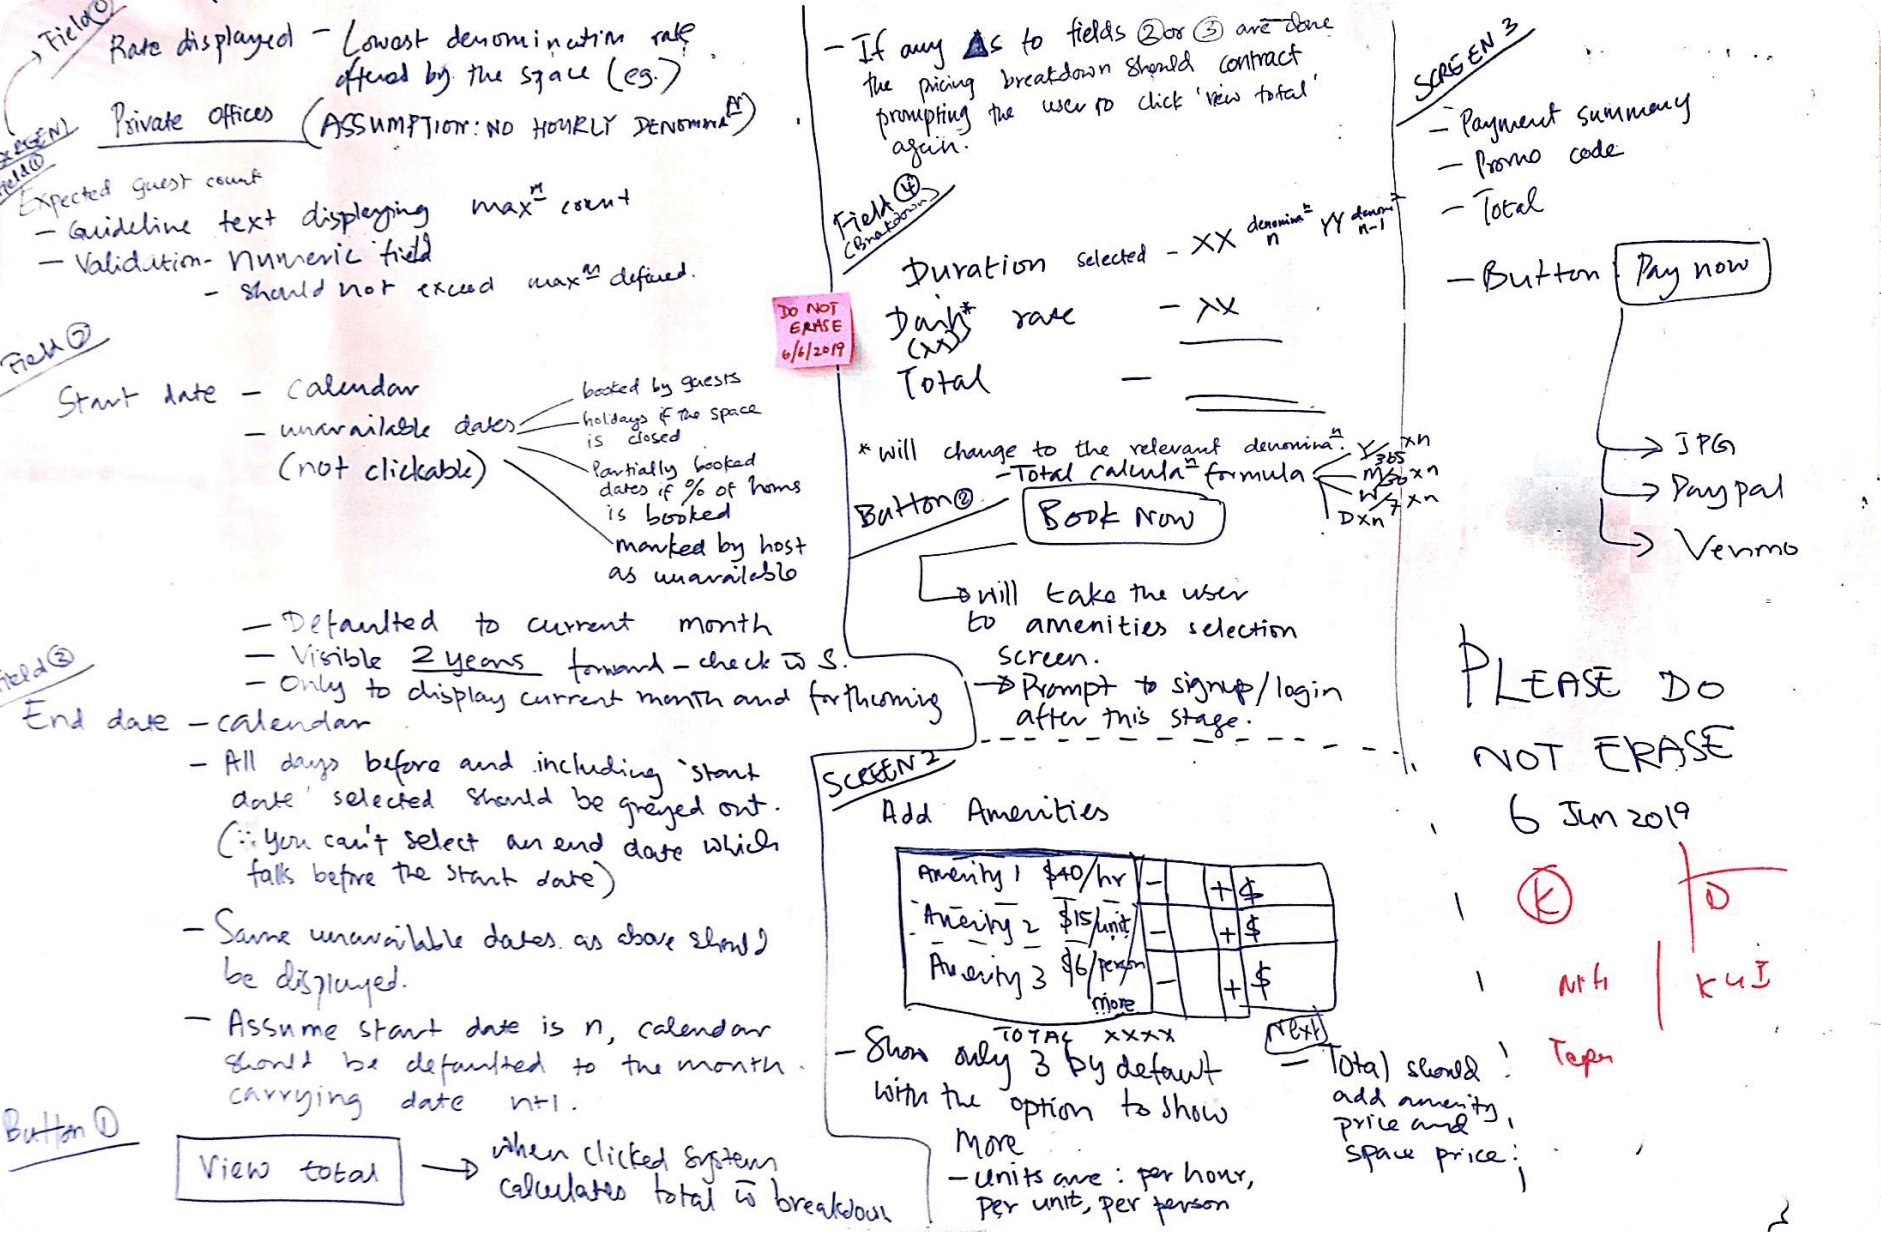 Field ①
Rate displayed - Lowest denomination rate
offered by the space (eg.)
SCREEN 1
Private offices (ASSUMPTION: NO HOURLY DENOMINAⁿ)
Field ①
Expected guest count
- Guideline text displaying maxᵐ count
- Validation - numeric field
- should not exceed maxᵐ defined.
Field ②
Start date - calendar
- unavailable dates
(not clickable)
booked by guests
holidays if the space
is closed
Partially booked
dates if % of hours
is booked
marked by host
as unavailable
- Defaulted to current month
- Visible 2 years forward - check w̄ S.
- Only to display current month and forthcoming
Field ③
End date - calendar
- All days before and including 'start
date' selected should be greyed out.
(∵ you can't select an end date which
falls before the start date)
- Same unavailable dates as above should
be displayed.
- Assume start date is n, calendar
should be defaulted to the month
carrying date n+1.
Button ①
View total → when clicked system
calculates total w̄ breakdown
- If any Δs to fields ② or ③ are done
the pricing breakdown should contract
prompting the user to click 'view total'
again.
DO NOT
ERASE
6/6/2019
Field ④
(Breakdown)
Duration selected - XX denominaⁿ n YY denomiⁿ n-1
Daily* rate - XX
(xx)
Total -
* will change to the relevant denominaⁿ.
- Total calculaⁿ formula
Y/365 xn
M/30 xn
W/7 xn
D xn
Button ②
Book Now
→ will take the user
to amenities selection
screen.
→ Prompt to signup/login
after this stage.
SCREEN 2
Add Amenities
Amenity 1 $40/hr - + $
Amenity 2 $15/unit - + $
Amenity 3 $6/person - + $
more
TOTAL XXXX
Next
- Show only 3 by default
with the option to show
more
- units are : per hour,
per unit, per person
- Total should
add amenity
price and
space price.
SCREEN 3
- Payment summary
- Promo code
- Total
- Button : Pay now
→ IPG
→ Paypal
→ Venmo
PLEASE DO
NOT ERASE
6 Jun 2019
K
D